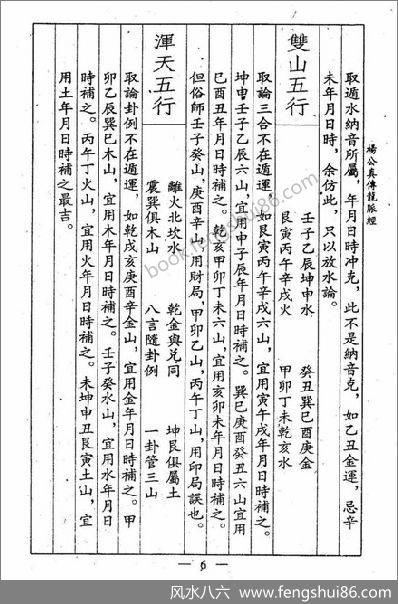 楊公真傳龍脈經
取遁水納音所屬，年月日時冲克，此不是納音克，如乙丑金運，忌辛
未年月日時，余仿此，只以放水論。
雙山五行
壬子乙辰坤申水　癸丑巽巳酉庚金
艮寅丙午辛戌火　甲卯丁未乾亥水
取論三合不在遁運，如艮寅丙午辛戌六山，宜用寅午戌年月日時補之。
坤申壬子乙辰六山，宜用申子辰年月日時補之。巽巳庚酉癸丑六山宜用
巳酉丑年月日時補之。乾亥甲卯丁未六山，宜用亥卯未年月日時補之。
但俗師壬子癸山，庚酉辛山，用財局，甲卯乙山，丙午丁山，用印局誤也。
渾天五行
離火北坎水　乾金與兌同　坤艮俱屬土
震巽俱木山　八言隨卦例　一卦管三山
取論卦例不在遁運，如乾戌亥庚酉辛金山，宜用金年月日時補之。甲
卯乙辰巽巳木山，宜用木年月日時補之。壬子癸水山，宜用水年月日
時補之。丙午丁火山，宜用火年月日時補之。未坤申丑艮寅土山，宜
用土年月日時補之最吉。
— 6 —
book.fengshui86.com
风水八六 www.fengshui86.com